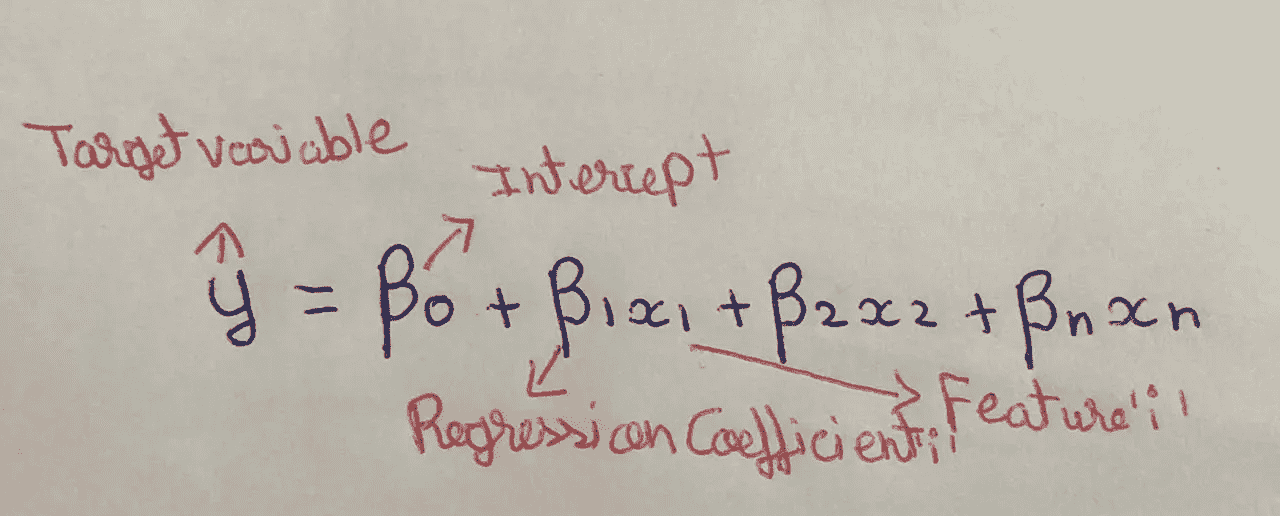 Target variable
Intercept
y = β0 + β1x1 + β2x2 + βnxn
Regression Coefficient 'i'
Feature 'i'